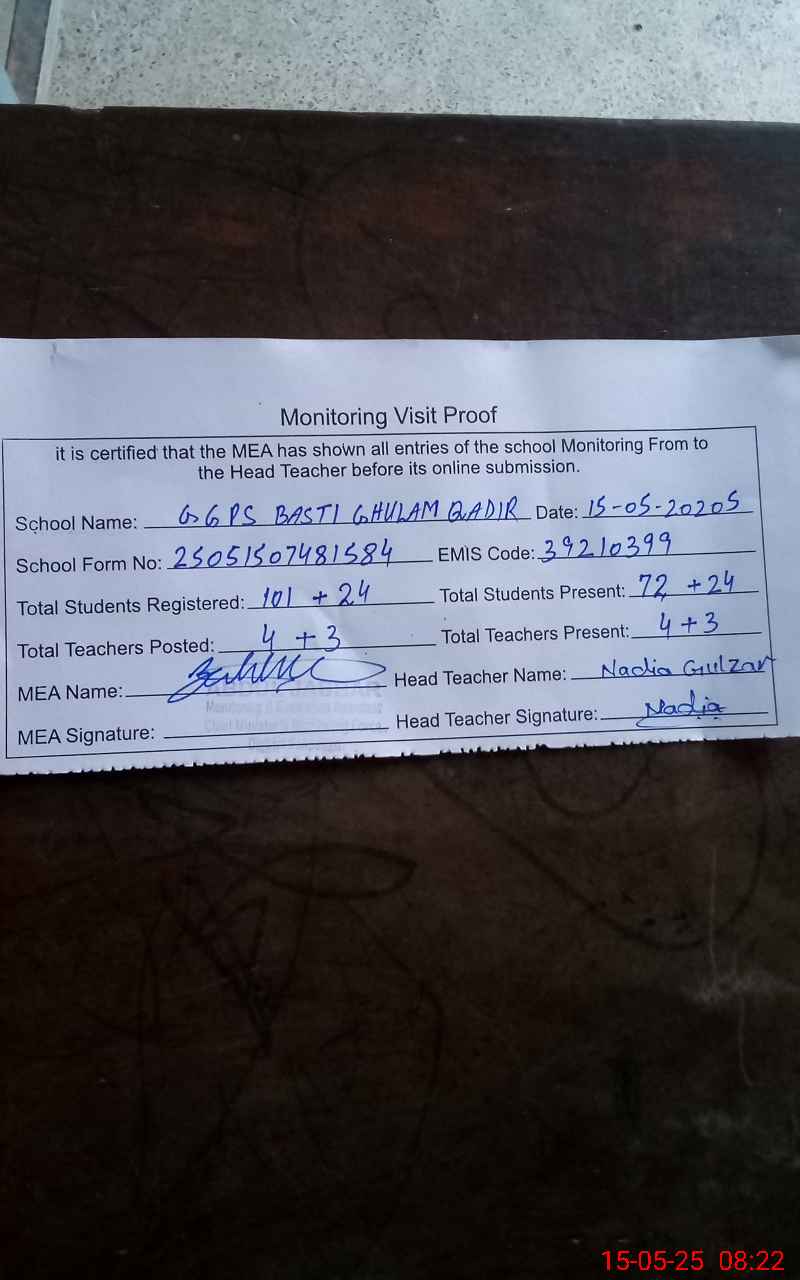 Monitoring Visit Proof
it is certified that the MEA has shown all entries of the school Monitoring From to
the Head Teacher before its online submission.
School Name: GGPS BASTI GHULAM QADIR Date: 15-05-20205
School Form No: 25051507481584 EMIS Code: 39210399
Total Students Registered: 101 + 24 Total Students Present: 72 + 24
Total Teachers Posted: 4 + 3 Total Teachers Present: 4 + 3
MEA Name: Head Teacher Name: Nadia Gulzar
MEA Signature: Head Teacher Signature: Nadia
15-05-25 08:22